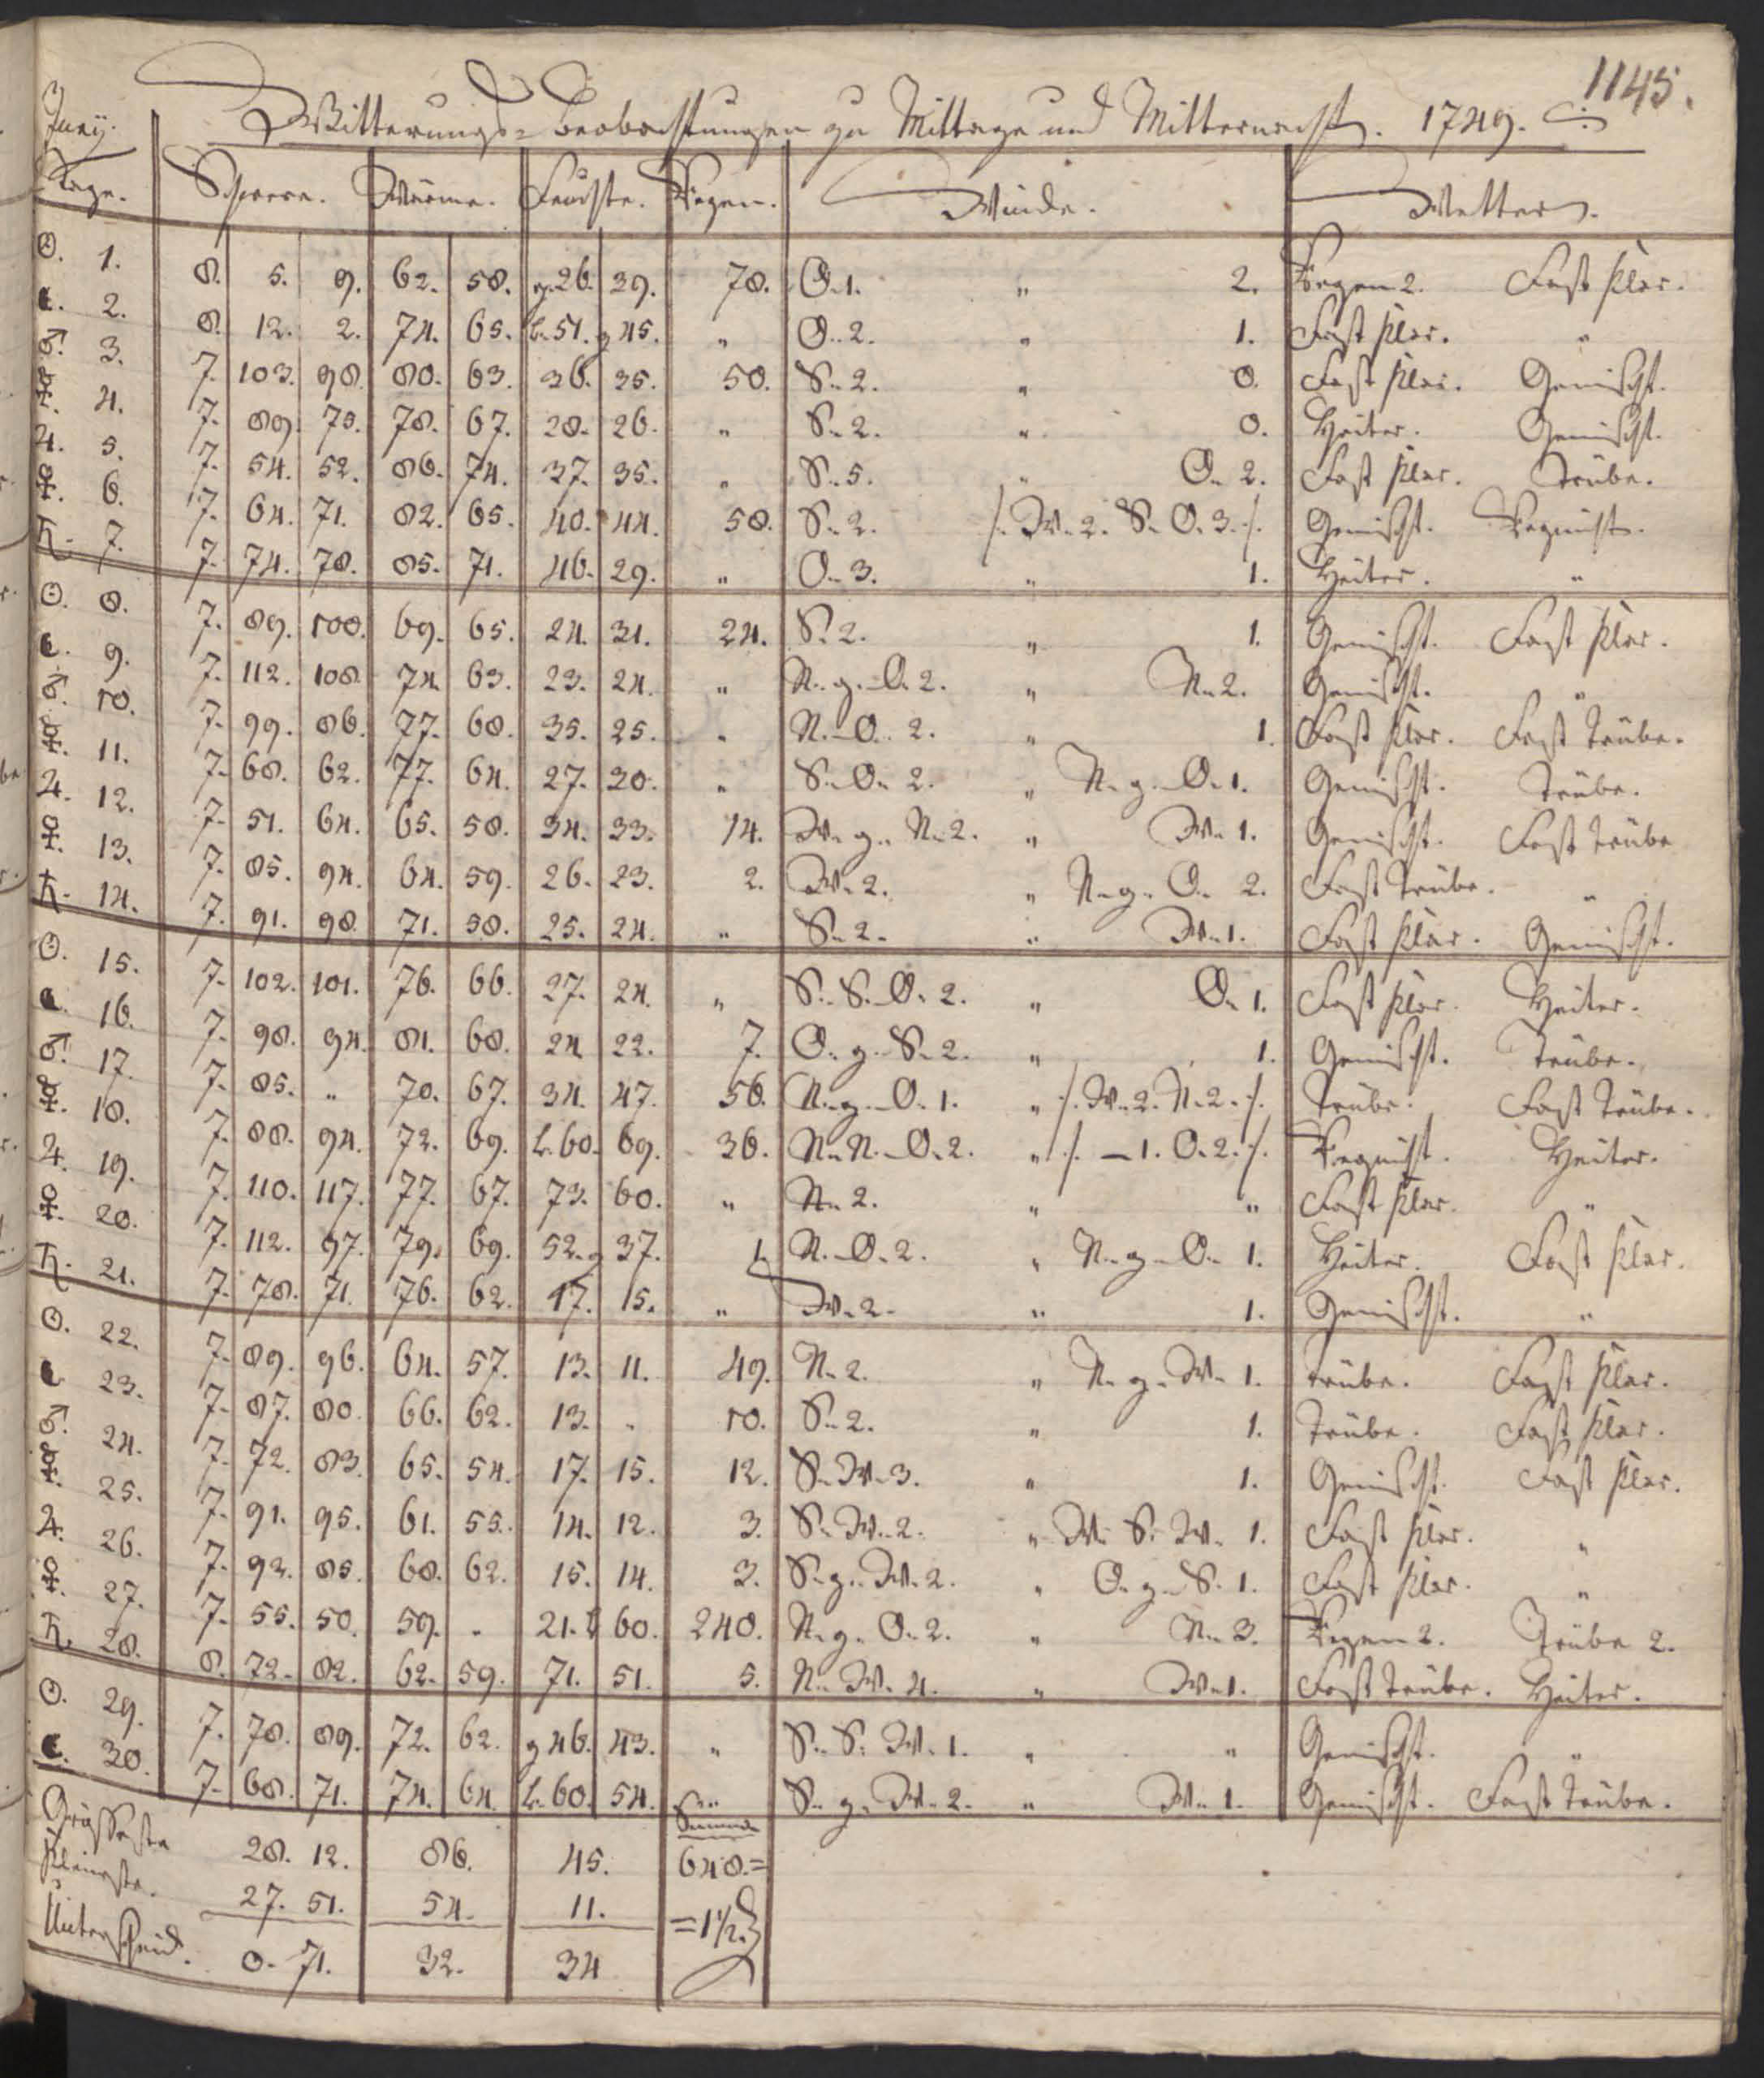 1145.
Juny. Witterungs- Beobachtungen zu Mittage und Mitternacht. 1749.
Tage. Schwere. Wärme. Feuchte. Regen. Winde. Wetter.
☉. 1. 8. 5. 9. 62. 58. g. 26. 39. 78. O. 1. " 2. Regen 2. Fast klar.
☾. 2. 8. 12. 2. 74. 65. l. 51. g 45. " O. 2. " 1. Fast klar. "
♂. 3. 7. 103. 98. 80. 63. 36. 35. 50. S. 2. " 0. Fast klar. Gemischt.
☿. 4. 7. 89. 75. 78. 67. 28. 26. " S. 2. " 0. Heiter. Gemischt.
♃. 5. 7. 54. 52. 86. 74. 37. 35. " S. 5. " O. 2. Fast klar. Trübe.
♀. 6. 7. 64. 71. 82. 65. 40. 44. 58. S. 2. /. W. 2. S. O. 3. /. Gemischt. Regnicht.
♄. 7. 7. 74. 78. 85. 71. 46. 29. " O. 3. " 1. Heiter. "
☉. 8. 7. 89. 100. 69. 65. 24. 31. 24. S. 2. " 1. Gemischt. Fast klar.
☾. 9. 7. 112. 108. 74. 63. 23. 24. " N. g. O. 2. " N. 2. Gemischt. "
♂. 10. 7. 99. 86. 77. 68. 35. 25. " N. O. 2. " 1. Fast klar. Fast trübe.
☿. 11. 7. 68. 62. 77. 64. 27. 20. " S. O. 2. " N. g. O. 1. Gemischt. Trübe.
♃. 12. 7. 51. 64. 65. 58. 34. 33. 14. W. g. N. 2. " W. 1. Gemischt. Fast trübe
♀. 13. 7. 85. 94. 64. 59. 26. 23. 2. W. 2. " N. g. O. 2. Fast trübe. "
♄. 14. 7. 91. 98. 71. 58. 25. 24. " S. 2. " W. 1. Fast klar. Gemischt.
☉. 15. 7. 102. 101. 76. 66. 27. 24. " S. S. O. 2. " O. 1. Fast klar. Heiter.
☾. 16. 7. 98. 94. 81. 68. 24. 22. 7. O. g. S. 2. " 1. Gemischt. Trübe.
♂. 17. 7. 85. " 70. 67. 34. 47. 56. N. g. O. 1. " /. W. 2. N. 2. /. Trübe. Fast trübe.
☿. 18. 7. 88. 94. 72. 69. l. 60. 69. 36. N. N. O. 2. " /. – 1. O. 2. /. Regnicht. Heiter.
♃. 19. 7. 110. 117. 77. 67. 73. 60. " N. 2. " " Fast klar. "
♀. 20. 7. 112. 97. 79. 69. 52. g 37. 1. N. O. 2. " N. g. O. 1. Heiter. Fast klar.
♄. 21. 7. 78. 71. 76. 62. 17. 15. " W. 2. " 1. Gemischt. "
☉. 22. 7. 89. 96. 64. 57. 13. 11. 49. N. 2. " N. g. W. 1. Trübe. Fast klar.
☾. 23. 7. 87. 80. 66. 62. 13. " 10. S. 2. " 1. Trübe. Fast klar.
♂. 24. 7. 72. 83. 65. 54. 17. 15. 12. S. W. 3. " 1. Gemischt. Fast klar.
☿. 25. 7. 91. 95. 61. 55. 14. 12. 3. S. W. 2. " W. S. W. 1. Fast klar. "
♃. 26. 7. 92. 85. 68. 62. 15. 14. 3. S. g. W. 2. " O. g. S. 1. Fast klar. "
♀. 27. 7. 55. 50. 59. " 21. l 60. 240. N. g. O. 2. " N. 3. Regen 2. Trübe 2.
♄. 28. 8. 72. 82. 62. 59. 71. 51. 5. N. W. 4. " W. 1. Fast trübe. Heiter.
☉. 29. 7. 78. 89. 72. 62. g 46. 43. " S. S. W. 1. " " Gemischt. "
☾. 30. 7. 68. 71. 74. 64. l. 60. 54. " S. g. W. 2. " W. 1. Gemischt. Fast trübe.
Summa
Grösseste 28. 12. 86. 45. 648.=
Kleinste. 27. 51. 54. 11. =1½.
Unterscheid. 0. 71. 32. 34